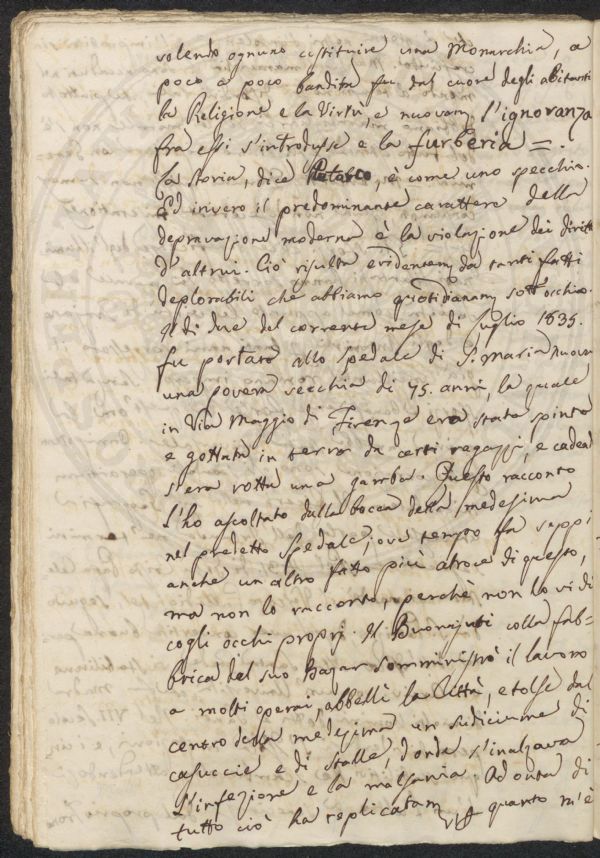 volendo ognuno costituire una Monarchia, a
poco a poco bandita fu dal cuore degli abitanti
la Religione e la Virtù, e nuovam. l'ignoranza
fra essi s'introdusse e la furberia =.
La storia, dice Plutarco, è come uno specchio.
Ed invero il predominante carattere della
depravazione moderna è la violazione dei diritti
d'altrui. Ciò risulta evidentem. da tanti fatti
deplorabili che abbiamo quotidianam. sott'occhio.
Il dì due del corrente mese di Luglio 1835.
fu portata allo spedale di S. Maria Nuova
una povera vecchia di 75. anni, la quale
in Via Maggio di Firenze era stata spinta
e gettata in terra da certi ragazzi, e cadea
s'era rotta una gamba. Questo racconto
l'ho ascoltato dalla bocca della medesima
nel predetto spedale, ove tempo fa seppi
anche un altro fatto più atroce di questo,
ma non lo racconto, perchè non lo vidi
cogli occhi proprj. Il Buonajuti colla fab=
brica del suo Bazar somministrò il lavoro
a molti operai, abbellì la Città, e tolse dal
centro della medesima un sudiciume di
casuccie e di stalle, d'onde s'inalzava
l'infezione e la malsania. Ad onta di
tutto ciò ha replicatam. quanto m'è